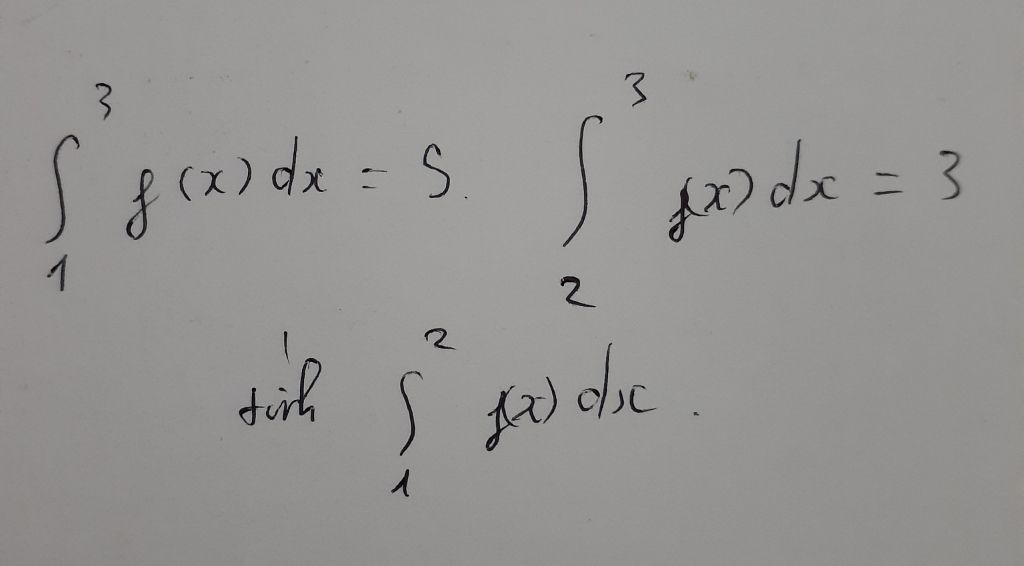 ∫₁³ f(x) dx = 5. ∫₂³ f(x) dx = 3
tính ∫₁² f(x) dx.